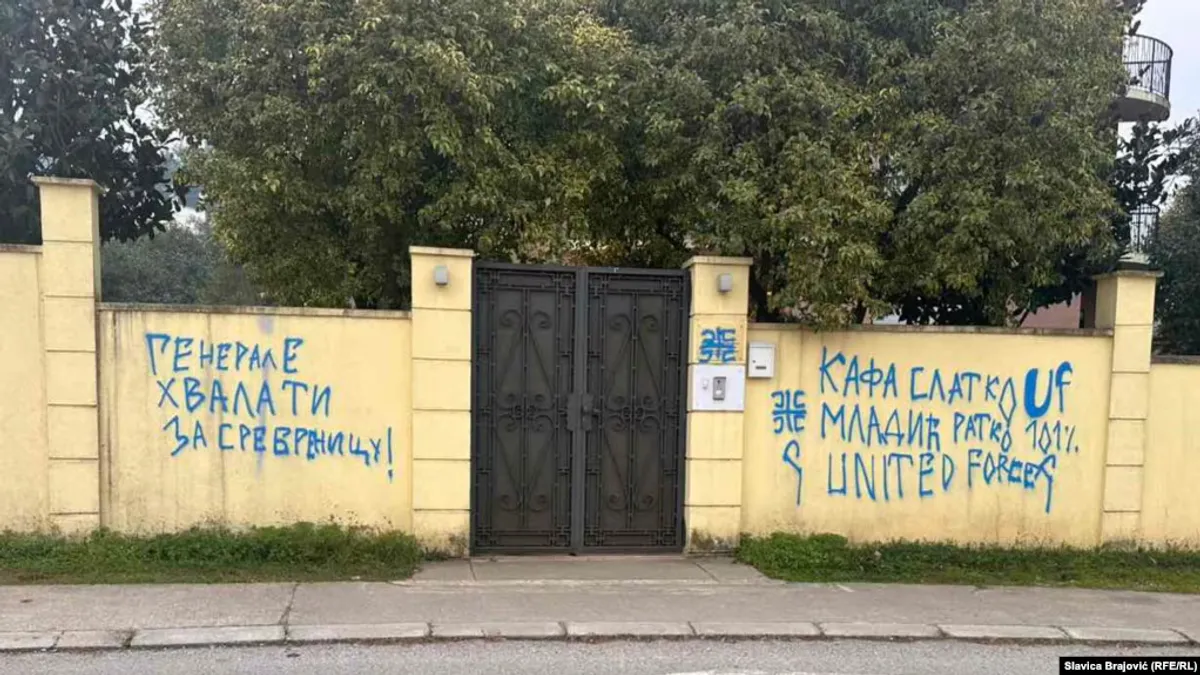 ГЕНЕРАЛЕ
ХВАЛА ТИ
ЗА СРЕБРЕНИЦУ!
КАФА СЛАТКО UF
МЛАДИЋ РАТКО 101%
UNITED FORCE
Slavica Brajović (RFE/RL)